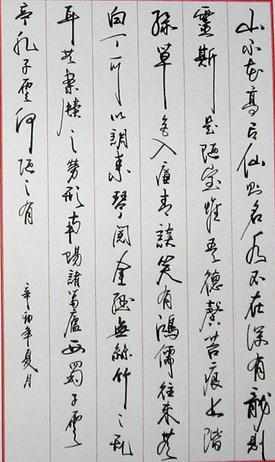 山不在高有仙则名水不在深有龍則
靈斯是陋室惟吾德馨苔痕上階
綠草色入簾青談笑有鴻儒往來無
白丁可以調素琴閱金經無絲竹之亂
耳無案牘之勞形南陽諸葛廬西蜀子雲
亭孔子雲何陋之有
辛卯年夏月